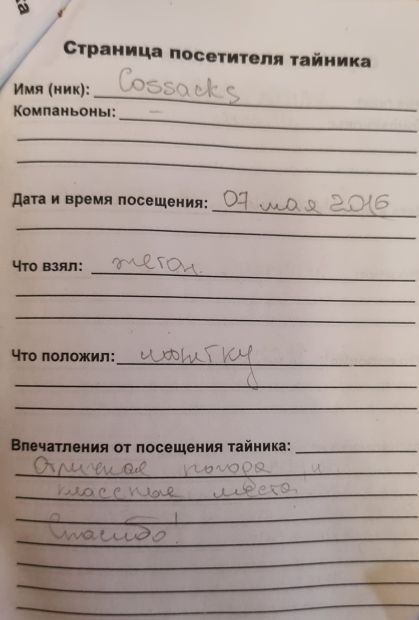 ка
Страница посетителя тайника
Имя (ник): Cossacks
Компаньоны: –
Дата и время посещения: 07 мая 2016
Что взял: жетон.
Что положил: монетку
Впечатления от посещения тайника:
Отличная погода и
классные места
Спасибо!